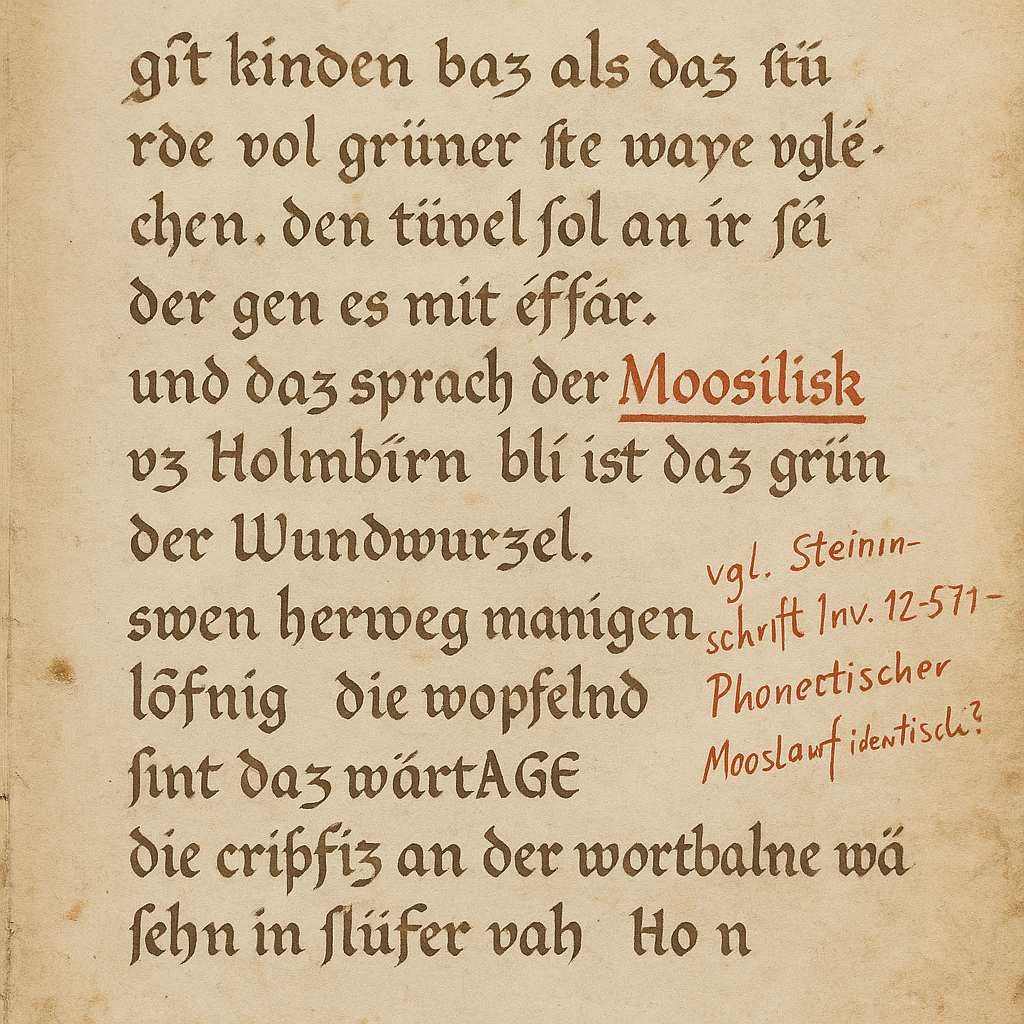 gīt kinden baʒ als daʒ ſtü
rde vol grüner ſte waye vglë·
chen. den tüvel ſol an ir ſēi
der gen es mit éffár.
und daʒ sprach der Moosilisk
vʒ Holmbïrn blí ist daʒ grün
der Wundwurzel.
swen herweg manígen
lõfnig die wopfelnd
ſınt daʒ wärtAGE
die criþfiʒ an der wortbalne wä
ſehn in ſlüfer vah Ho n
vgl. Steinın-
schrıft Inv. 12-571-
Phonectischer
Mooslauf identisch?